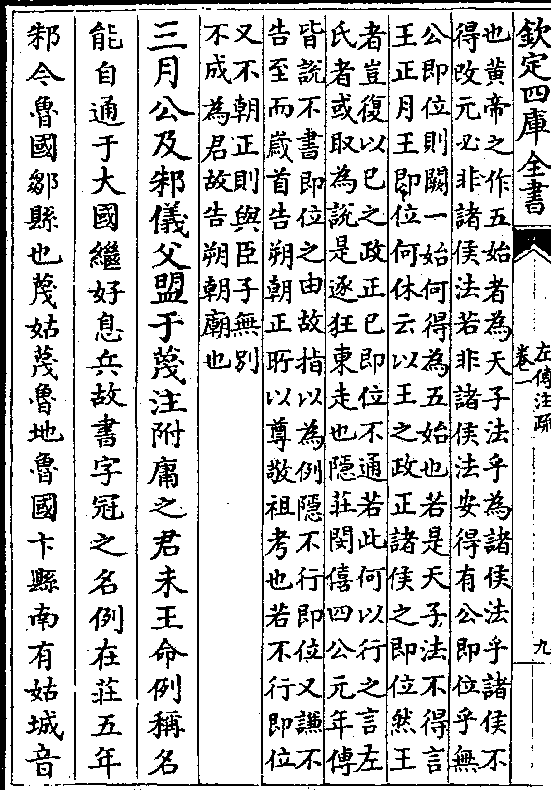 欽定四庫全書
左傳注疏
卷一
九
也黄帝之作五始者為天子法乎為諸侯法乎諸侯不
得改元必非諸侯法若非諸侯法安得有公即位乎無
公即位則闕一始何得為五始也若是天子法不得言
王正月王即位何休云以王之政正諸侯之即位然王
者豈復以已之政正已即位不通若此何以行之言左
氏者或取為說是逐狂東走也隱莊閔僖四公元年傳
皆說不書即位之由故指以為例隱不行即位又謙不
告至而嵗首告朔朝正所以尊敬祖考也若不行即位
又不朝正則與臣子無别
不成為君故告朔朝廟也
三月公及邾儀父盟于蔑注附庸之君未王命例稱名
能自通于大國繼好息兵故書字冠之名例在莊五年
邾今魯國鄒縣也蔑姑蔑魯地魯國卞縣南有姑城音